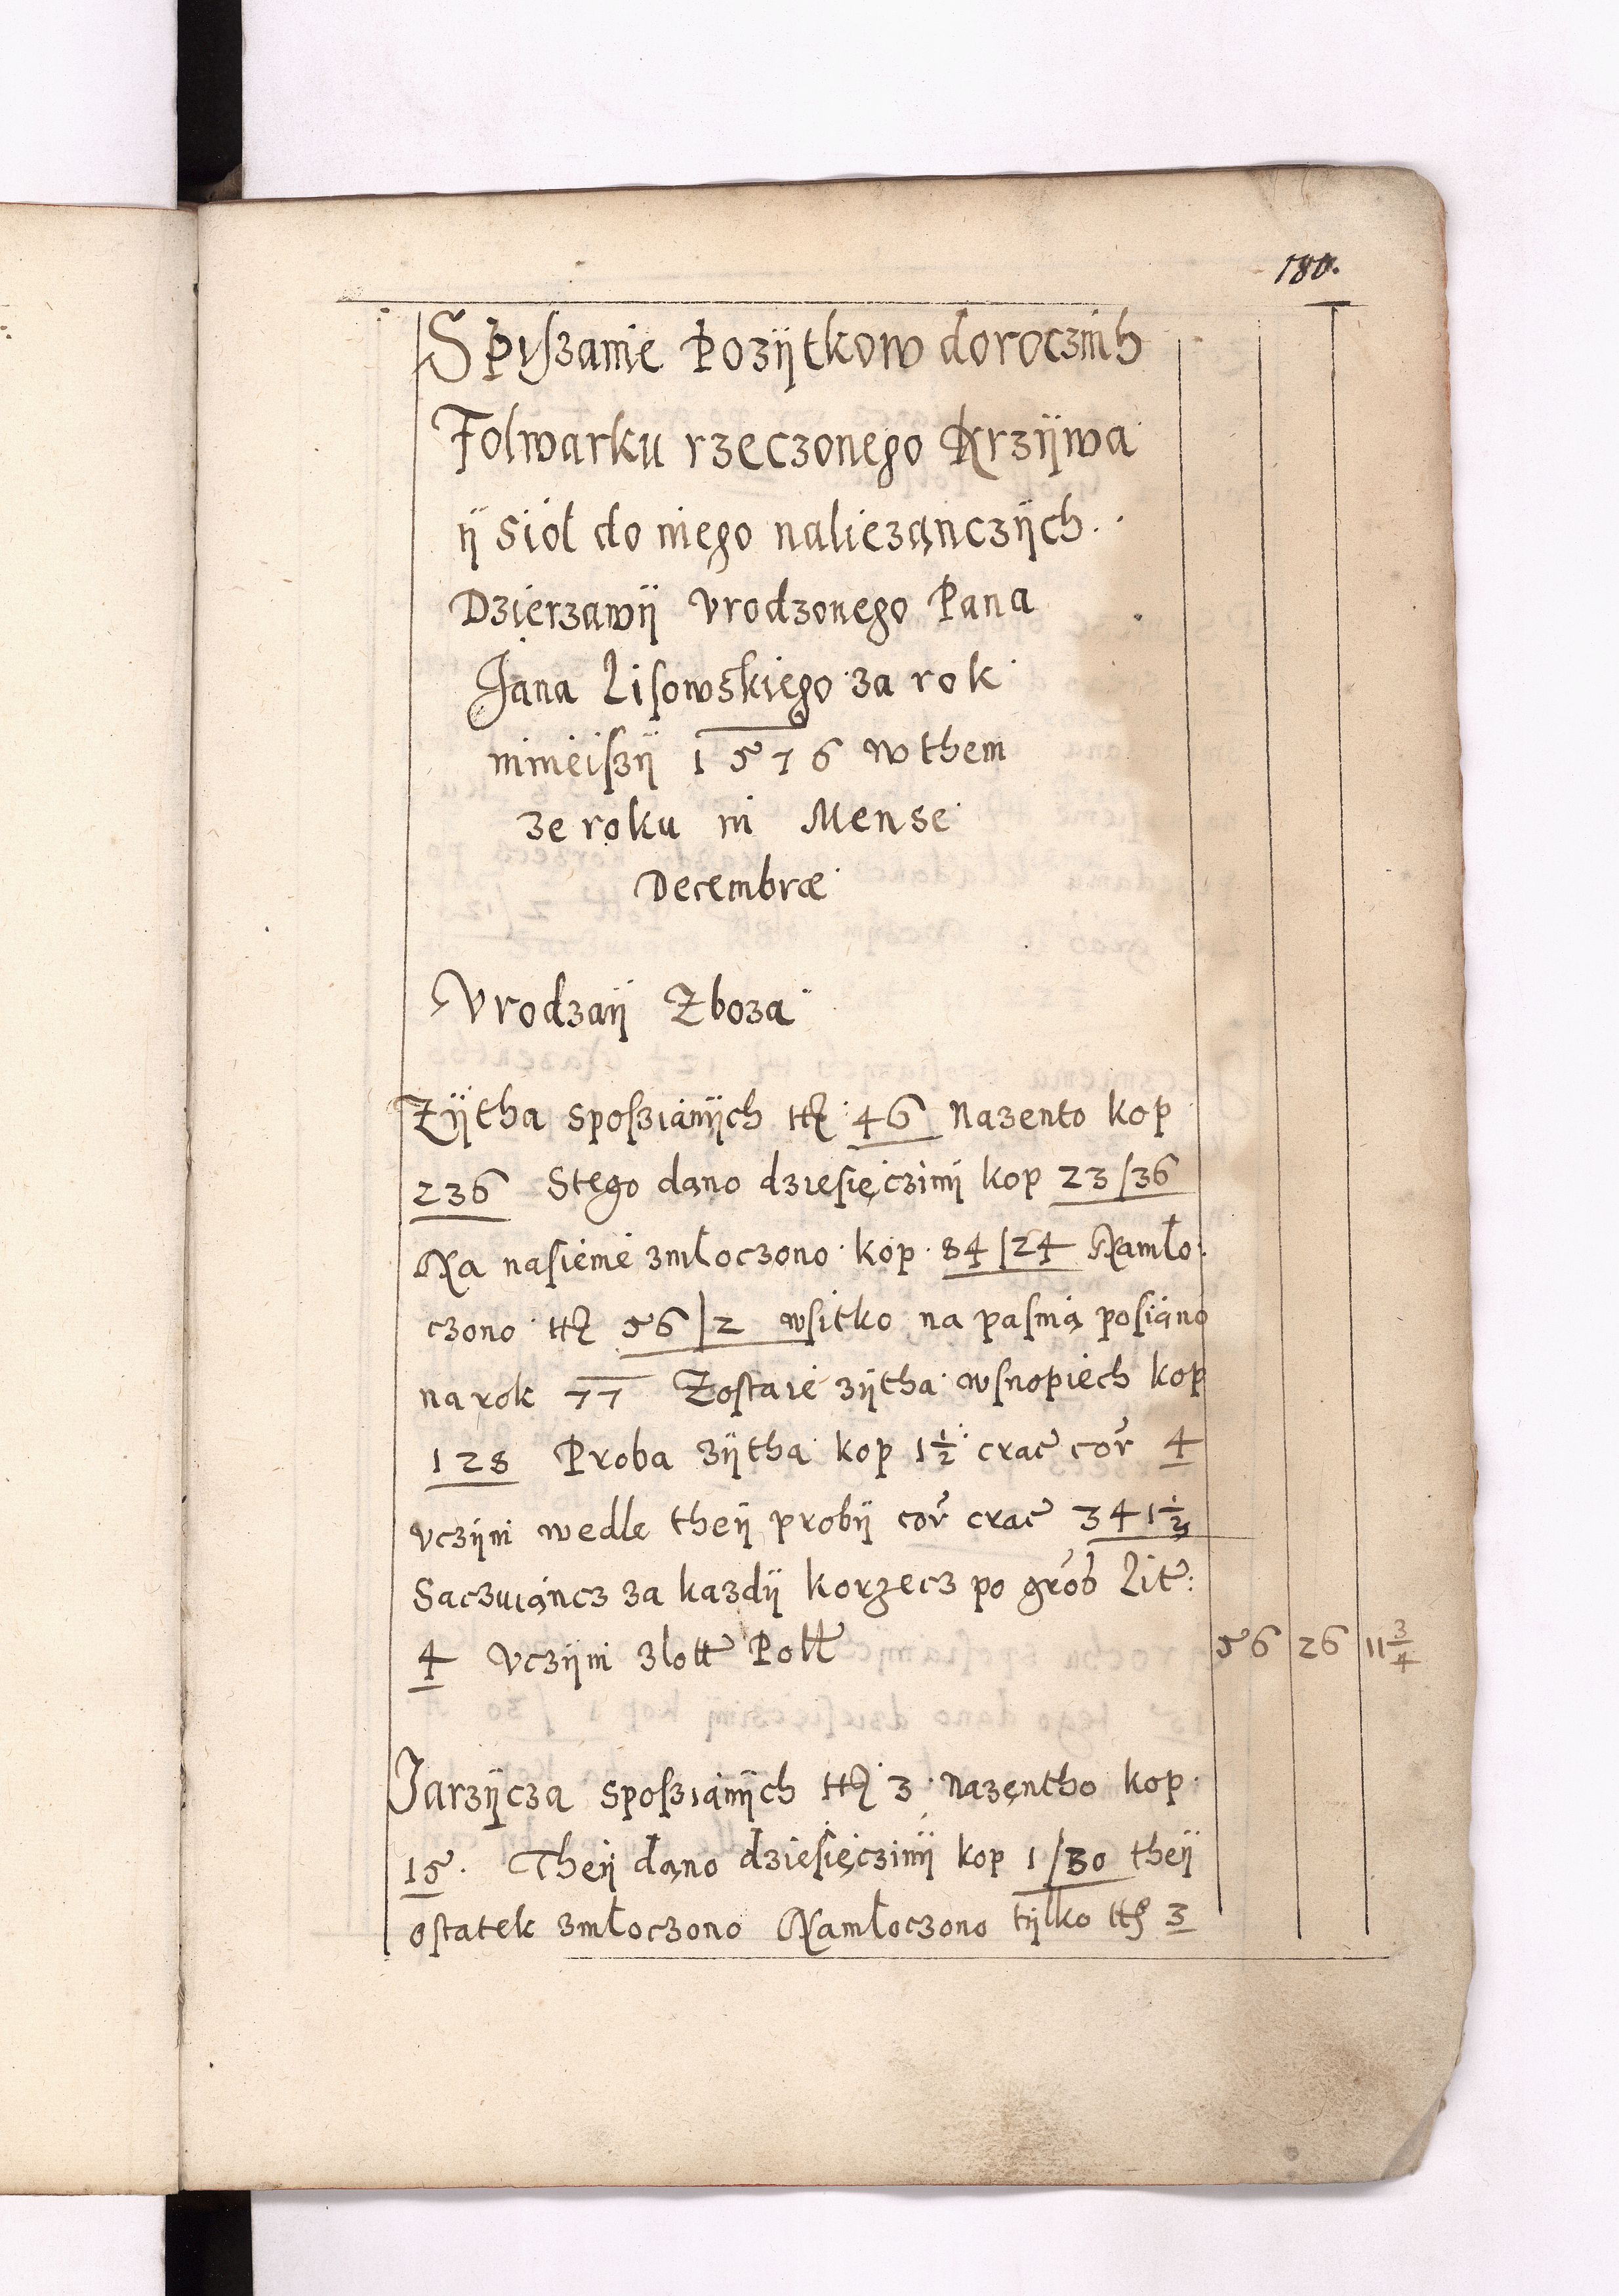 180.
Spiſzanie Pozÿtkow dorocznih
Folwarku rzeczonego Krzÿwa
ÿ siol do niego nalieząnczÿch.
Dzierzawÿ Vrodzonego Pana
Jana Liſowskiego za rok
ninieiſzÿ 1576 w them
ze roku in Mense
Decembræ
Vrodzaÿ Zboza
Zÿtha spoſzianÿch tt 46 Nazento kop
236 Stego dąno dzieſięczinÿ kop 23/36
Na naſienie zmłoczono kop 84/24 Namło:
czono tt 56/2 wſitko na paſnią poſiąno
na rok 77 Zoſtaie zÿtha wſnopiech kop
128 Proba zÿtha kop 1½ crac cor 4
vczÿni wedle theÿ probÿ cor crac 341½
Saczuiąncz za kazdÿ korzecz po groß Lit:
4 Vczÿni zlott Poll 56 26 11¾
Jarzÿcza spoſzianÿch tt 3 Nazęntho kop
15. Theÿ dąno dzieſięczinÿ kop 1/30 theÿ
oſtatek zmłoczono Namłoczono tÿlko tt 3